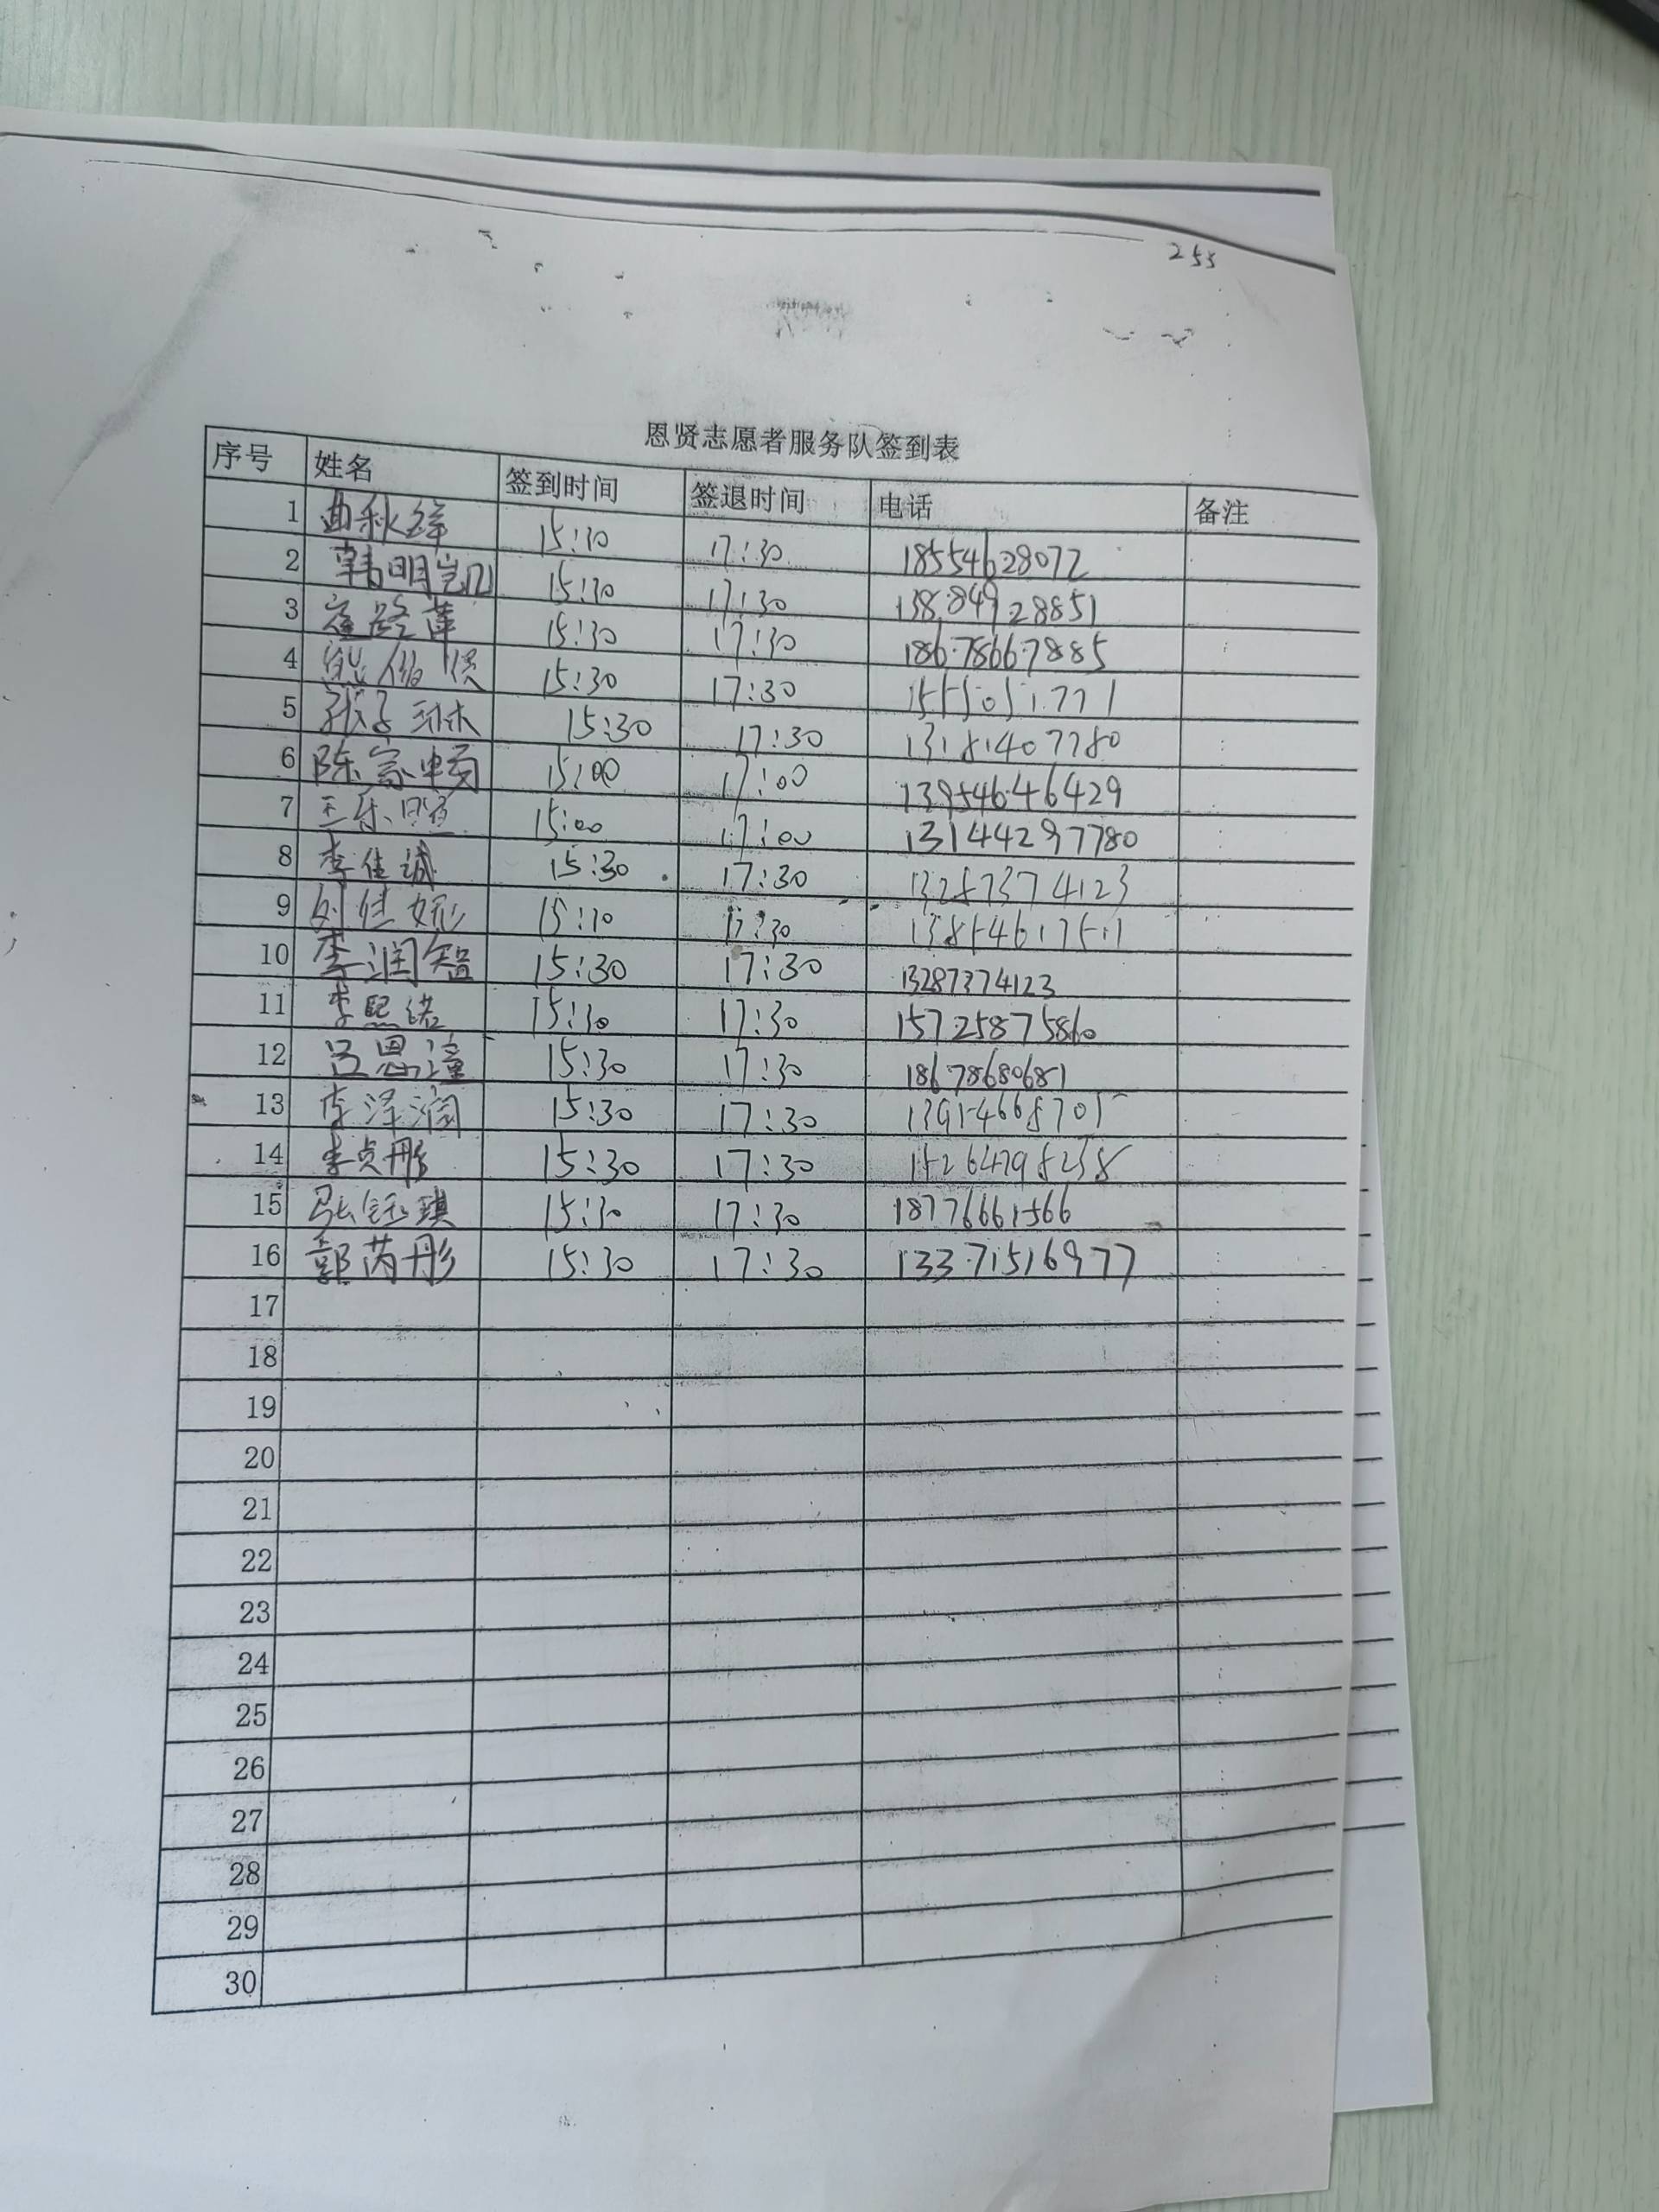 255
恩贤志愿者服务队签到表
序号 姓名 签到时间 签退时间 电话 备注
1 曲秋 15:30 17:30 18554628072
2 韩明岂 15:30 17:30 13884928851
3 15:30 17:30 18678667885
4 15:30 17:30 1555051771
5 张子琳 15:30 17:30 13181407780
6 陈家 15:00 17:00 13954646429
7 王乐 15:00 17:00 13144297780
8 李佳诚 15:30 17:30 13287374123
9 刘佳妮 15:30 17:30 13854617511
10 李润智 15:30 17:30 13287374123
11 李熙诺 15:30 17:30 15725875860
12 吕恩潼 15:30 17:30 18678680681
13 李泽润 15:30 17:30
14 李贞彤 15:30 17:30 15264298258
15 张钰琪 15:30 17:30 18776661566
16 郭芮彤 15:30 17:30 13371516977
17
18
19
20
21
22
23
24
25
26
27
28
29
30